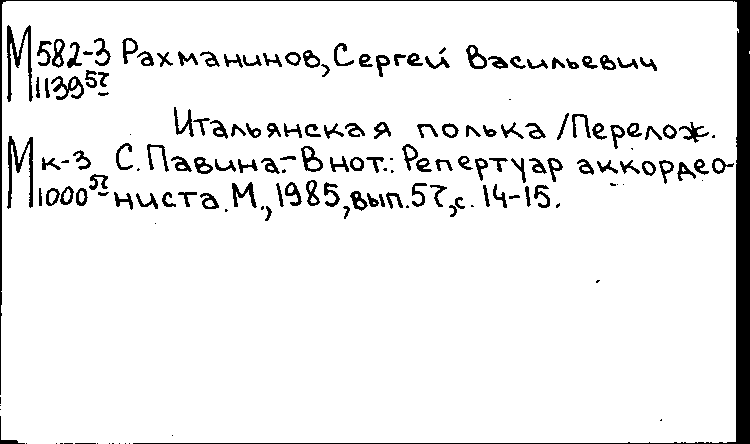 М 582-3 Рахманинов, Сергей Васильевич
1139 57
Итальянская полька / Перелож.
М к-3 С. Павина. - В нот.: Репертуар аккордео-
1000 57 ниста. М., 1985, вып. 57, с. 14-15.